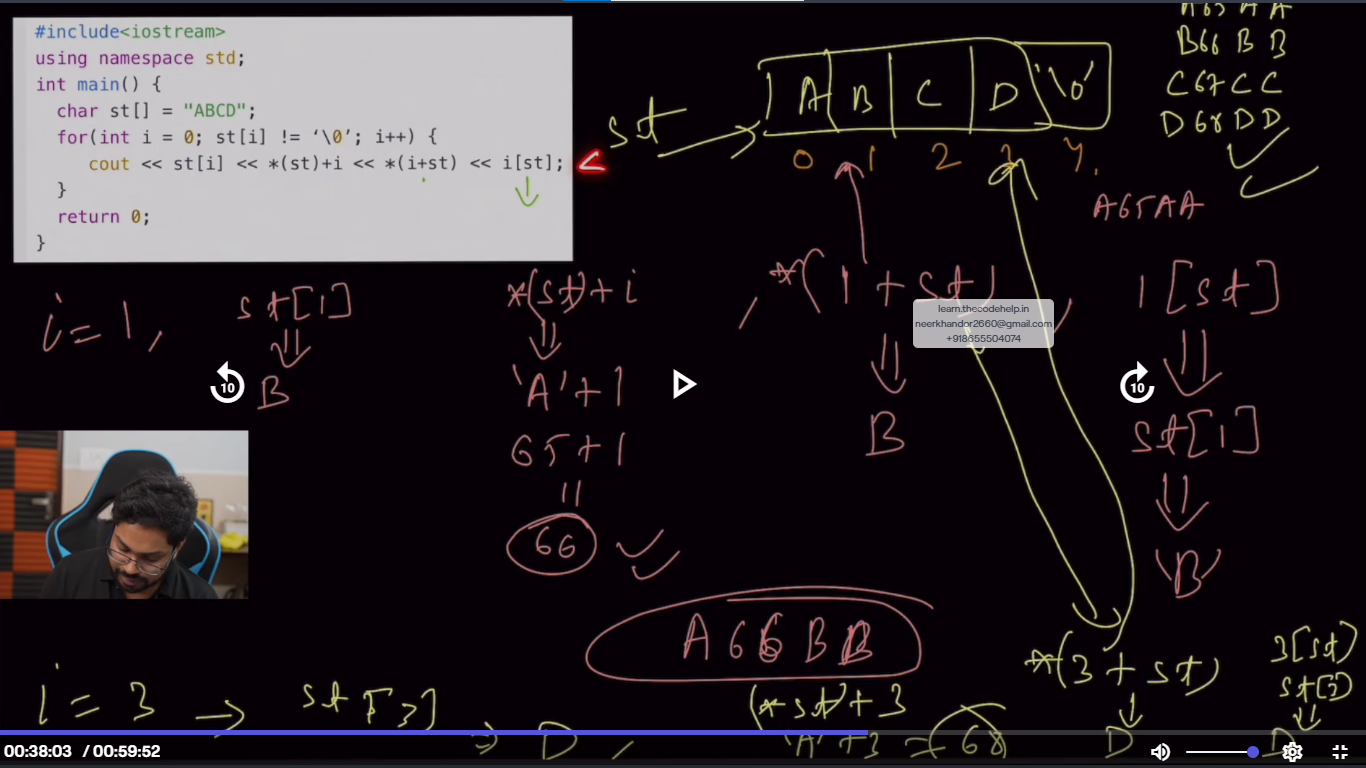 #include<iostream>
using namespace std;
int main() {
char st[] = "ABCD";
for(int i = 0; st[i] != ‘\0’; i++) {
cout << st[i] << *(st)+i << *(i+st) << i[st];
}
return 0;
}
st
A B C D '\0'
0 1 2 3 4
A 65 A A
B 66 B B
C 67 C C
D 68 D D
A65AA
i = 1,
st[1]
B
*(st)+i
'A'+1
65+1
66
, *(1+st)
B
, 1[st]
st[1]
'B'
learn.thecodehelp.in
neerkhandor2660@gmail.com
+918655504074
10
10
A66BB
i = 3
st[3]
D,
(*st)+3
'A'+3 = 68
*(3+st)
D
3[st]
st[3]
D
00:38:03 / 00:59:52